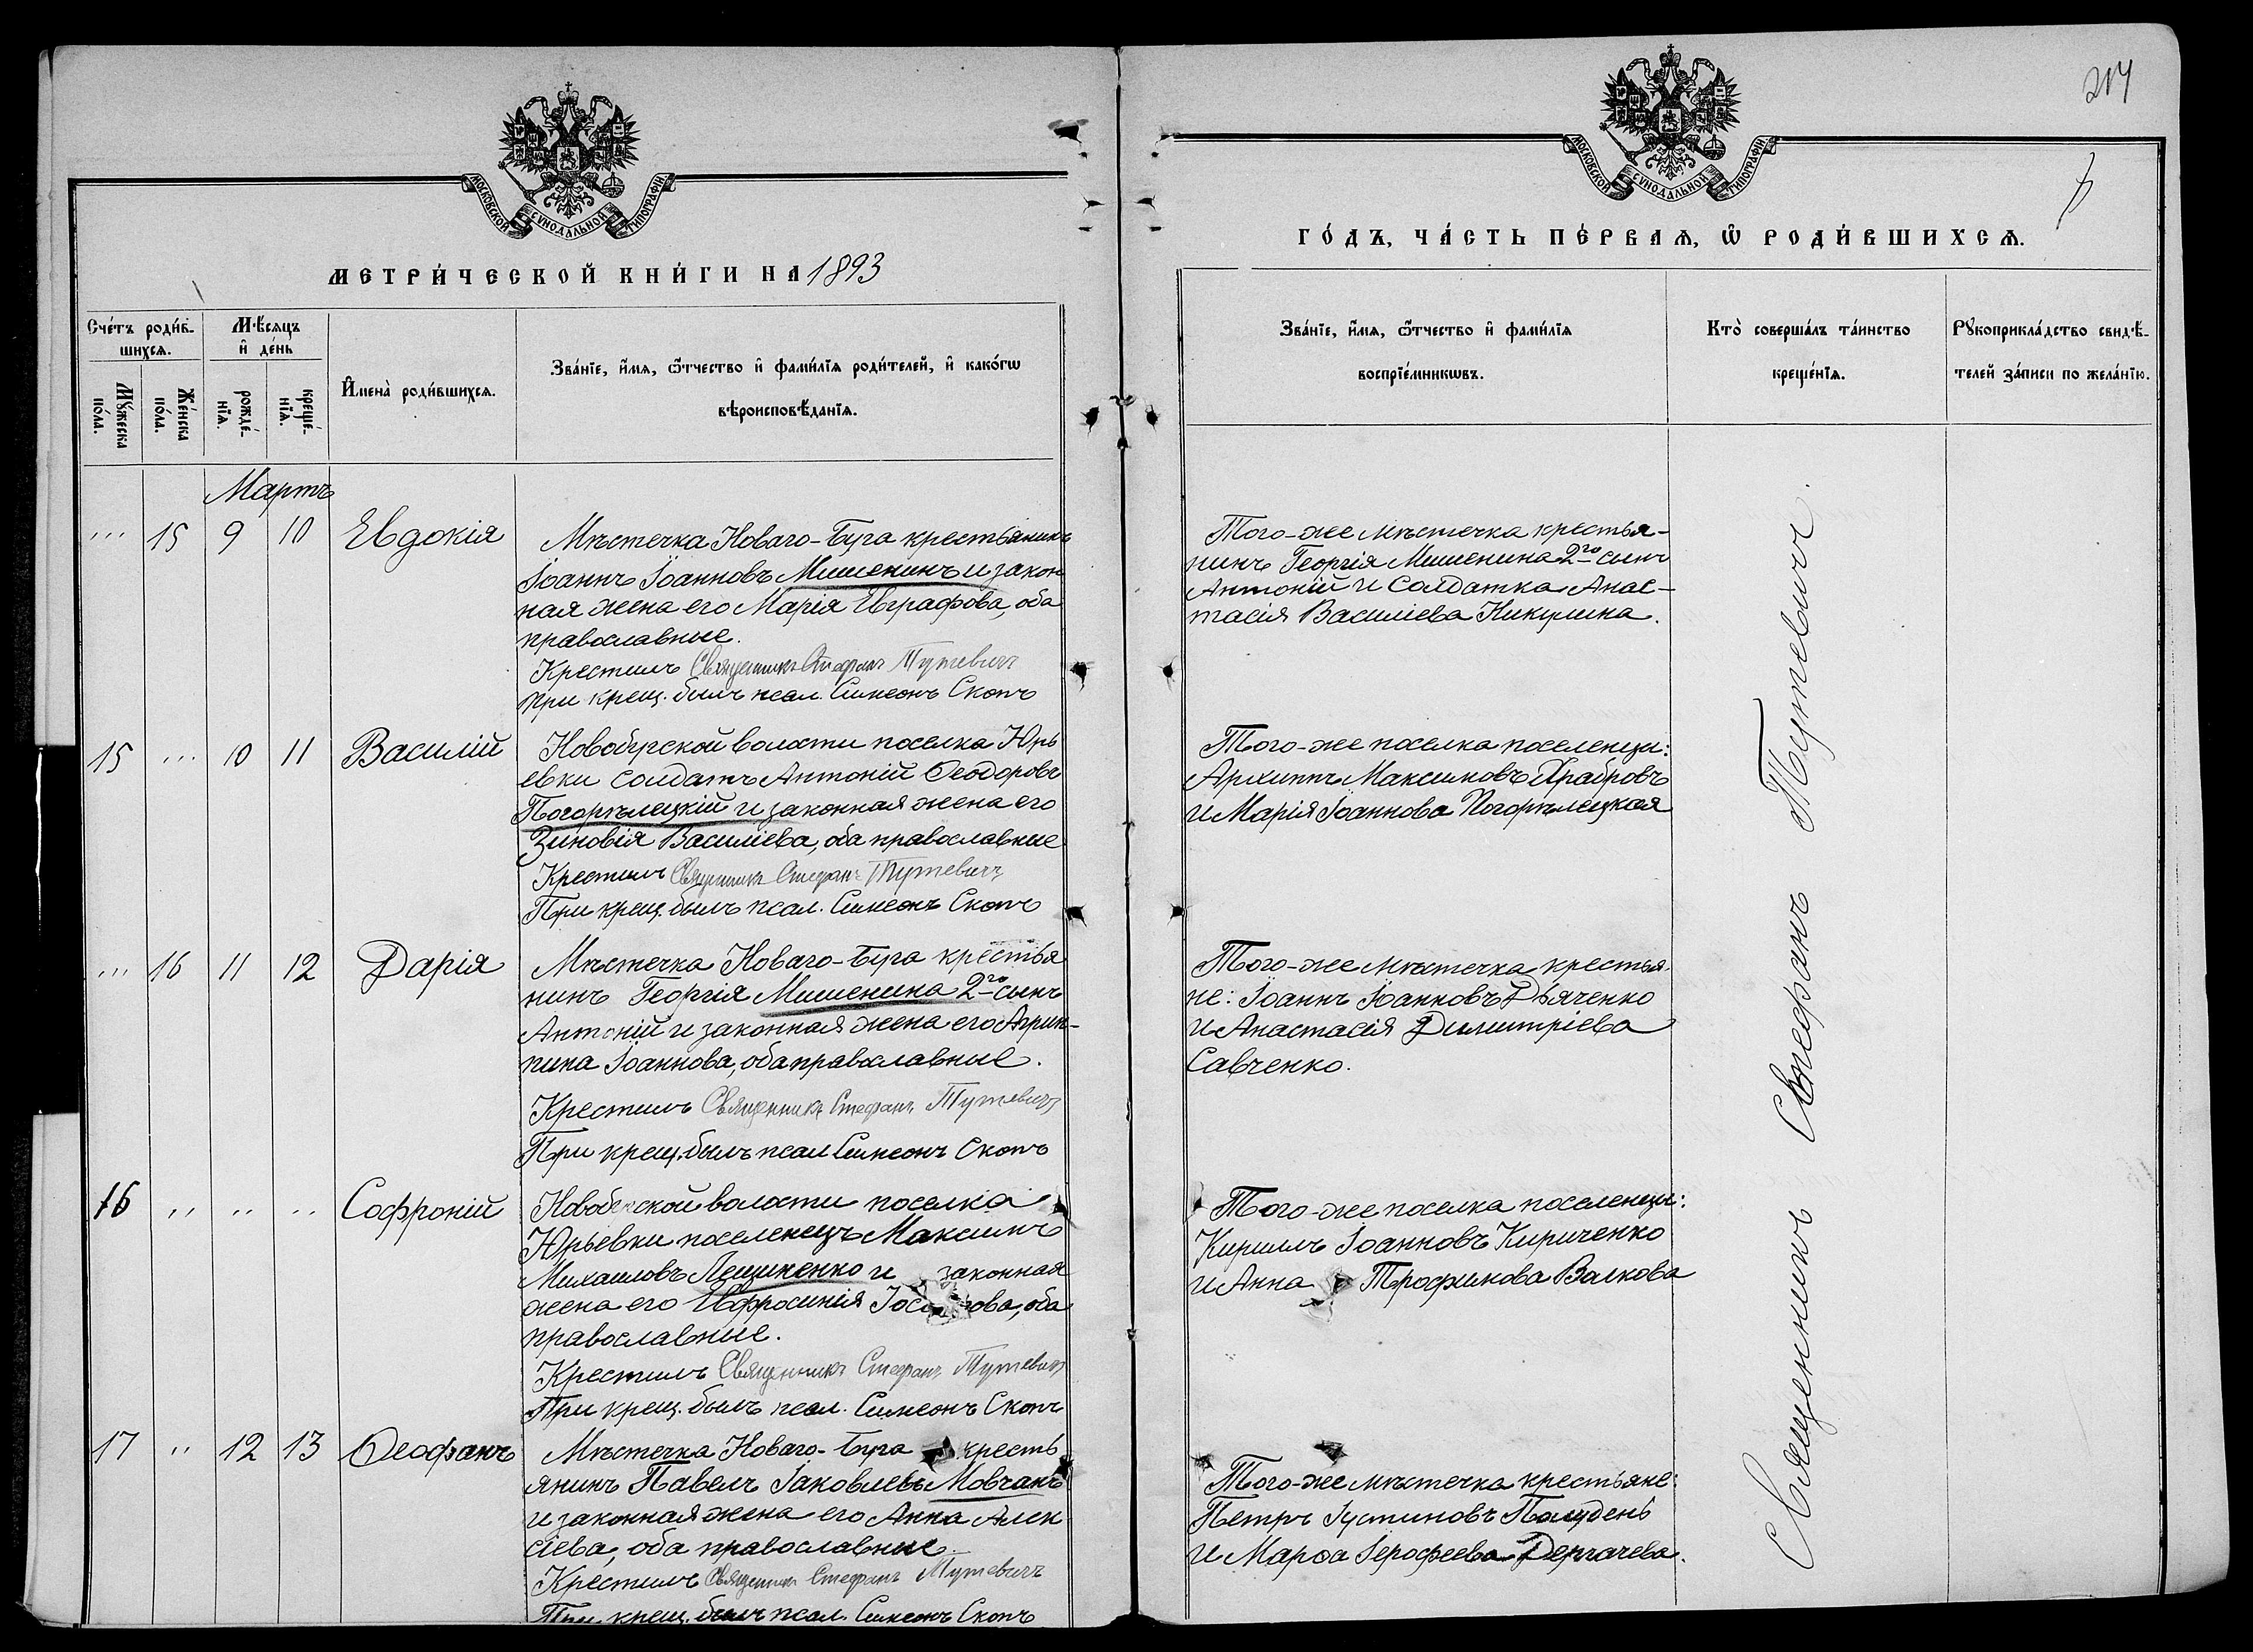 МОСКОВСКОЙ СѴНОДАЛЬНОЙ ТИПОГРАФІИ.
МЕТРИ́ЧЕСКОЙ КНИ́ГИ НА 1893
Сче́тъ роди́в-
шихсѧ.
Мꙋ́жеска
по́ла.
Же́нска
по́ла.
Мѣ́сѧцъ
и҆ де́нь
рожде́-
нїѧ.
креще́-
нїѧ.
И҆мена̀ роди́вшихсѧ.
Зва́нїе, и҆́мѧ, ѻ҆́тчество и҆ фами́лїѧ роди́телей, и҆ како́гѡ
вѣроисповѣ́данїѧ.
Мартъ
... 15 9 10 Евдокія
Мѣстечка Новаго-Буга крестьянинъ
Іоаннъ Іоанновъ Мишенинъ и закон
ная жена его Марія Евграфова, оба
православные.
Крестилъ Священникъ Стефанъ Тутевичъ
При крещ. былъ псал. Симеонъ Скопъ
15 ... 10 11 Василій
Новобугской волости поселка Юрь
евки солдатъ Антоній Ѳеодоровъ
Погорѣлецкій и законная жена его
Зиновія Василіева, оба православные
Крестилъ Священникъ Стефанъ Тутевичъ
При крещ. былъ псал. Симеонъ Скопъ
... 16 11 12 Дарія
Мѣстечка Новаго-Буга крестья
нинъ Георгія Мишенина 2го сынъ
Антоній и законная жена его Агрип-
пина Іоаннова, оба православные.
Крестилъ Священникъ Стефанъ Тутевичъ
При крещ. былъ псал. Симеонъ Скопъ
16 ,, ,, ,, Софроній
Новобугской волости поселка
Юрьевки поселенецъ Максимъ
Михаиловъ и законная
жена его Евфросинія оба
православные.
Крестилъ Священникъ Стефанъ Тутевичъ
При крещ. былъ псал. Симеонъ Скопъ
17 ,, 12 13 Ѳеофанъ
Мѣстечка Новаго-Буга кресть
янинъ Павелъ Іаковлевъ Мовчанъ
и законная жена его Анна Алек
сіева, оба православные.
Крестилъ Священникъ Стефанъ Тутевичъ
При крещ. былъ псал. Симеонъ Скопъ
217
МОСКОВСКОЙ СѴНОДАЛЬНОЙ ТИПОГРАФІИ.
ГО́ДЪ, ЧА́СТЬ ПЕ́РВАѦ, Ѡ҆ РОДИ́ВШИХСѦ.
Зва́нїе, и҆́мѧ, ѻ҆́тчество и҆ фами́лїѧ
воспрїе́мникѡвъ.
Кто̀ соверша́лъ та́инство
креще́нїѧ.
Рꙋкоприкла́дство свидѣ́-
телей за́писи по жела́нїю.
Того-же мѣстечка крестья-
нинъ Георгія Мишенина 2го сынъ
Антоній и солдатка Анас-
тасія Василіева Никулина.
Того-же поселка поселенцы:
Архиппъ Максимовъ Храбровъ
и Марія Іоаннова Погорѣлецкая
Того-же мѣстечка крестья-
не: Іоаннъ Іоанновъ Дьяченко
и Анастасія Димитріева
Савченко.
Того-же поселка поселенцы:
Кириллъ Іоанновъ Кириченко
и Анна Трофимова Валкова
Того-же мѣстечка крестьяне:
Петръ Іустиновъ Полудень
и Марѳа Іерофеева Дергачева.
Священникъ Стефанъ Тутевичъ.